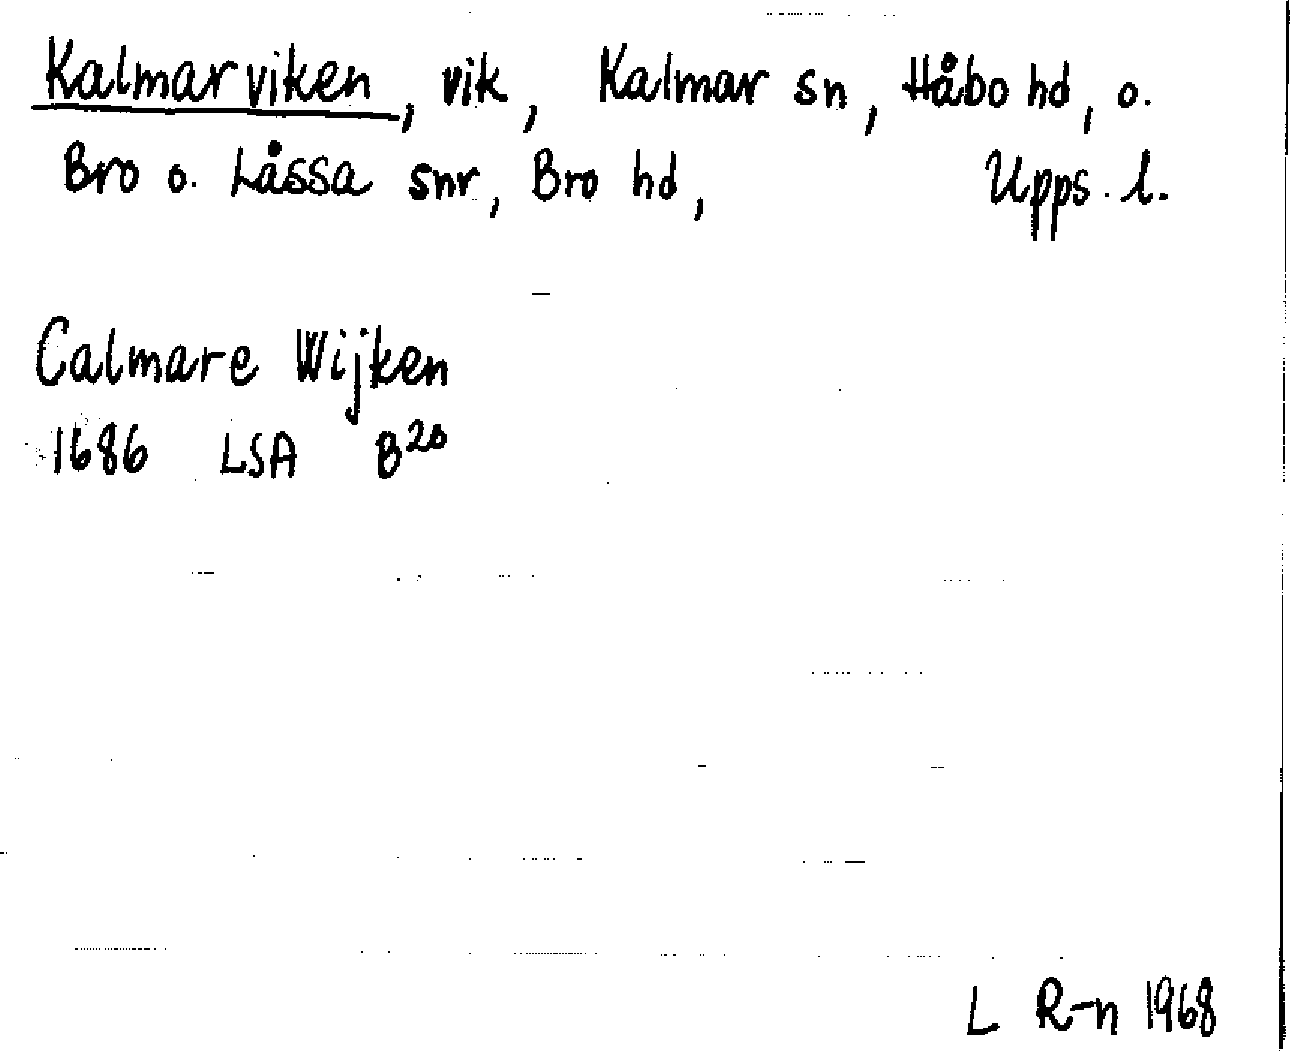 Kalmarviken, vik, Kalmar sn, Håbo hd, o.
Bro o. Låssa snr, Bro hd, Upps. l.
Calmare Wijken
1686 LSA B²⁰
L R-n 1968